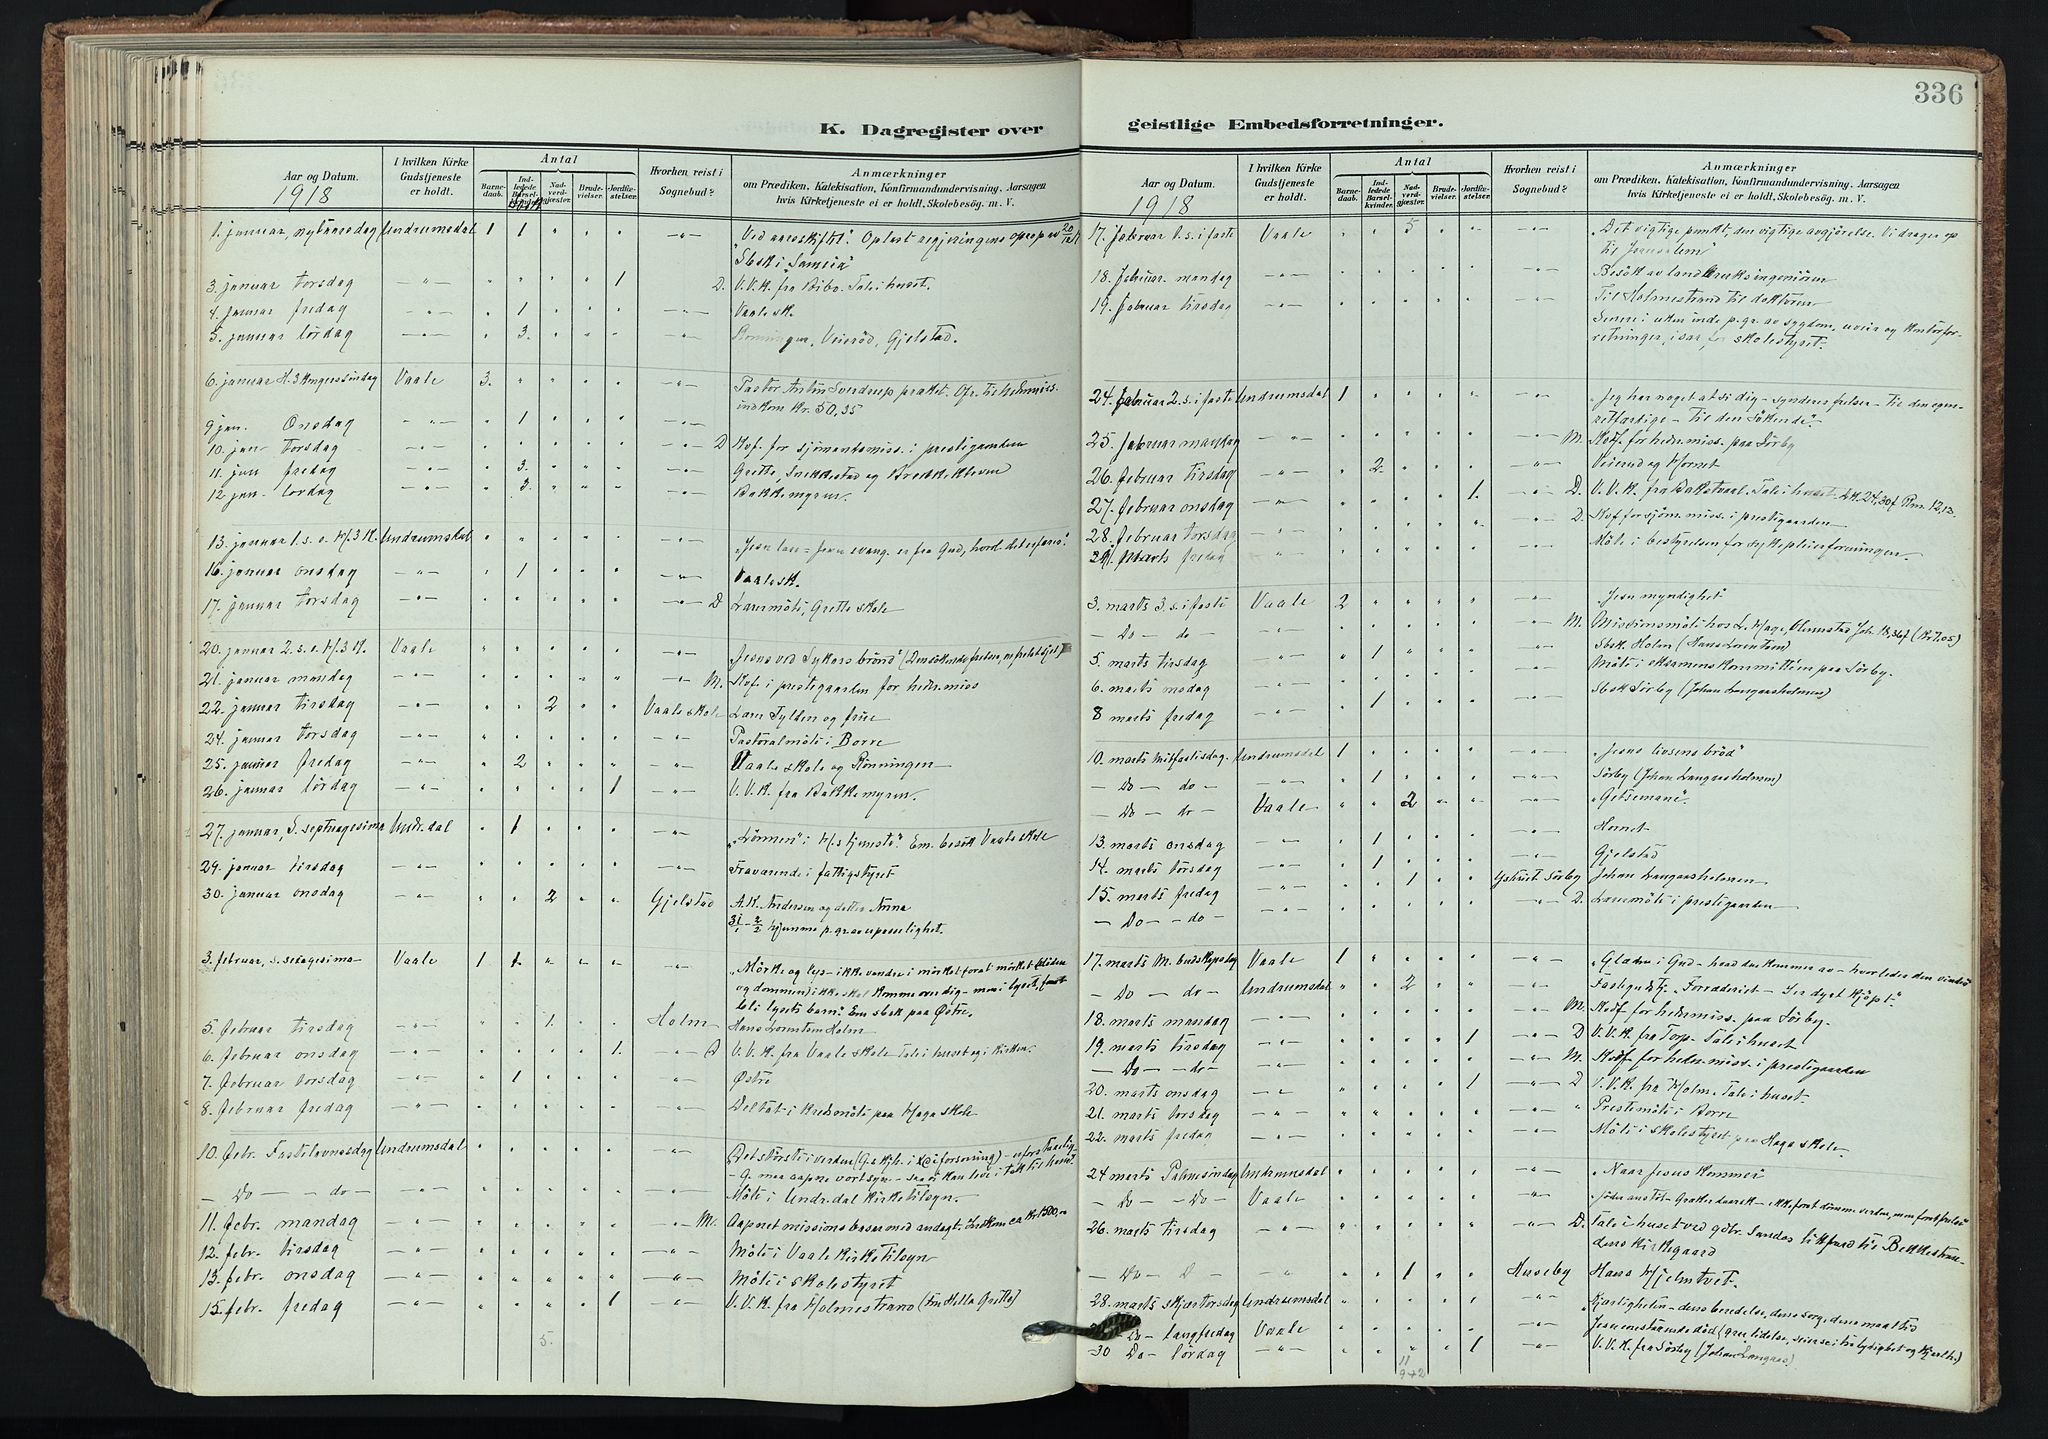 336
K. Dagregister over
geistlige Embedsforretninger.
Aar og Datum.
1918
I hvilken Kirke
Gudstjeneste
er holdt.
Antal
Barne-
daab.
Ind-
ledede
Barsel-
Nad-
verd-
gjæster.
Brude-
vielser.
Jordfæ-
stelser.
Hvorhen reist i
Sognebud?
Anmærkninger
om Prædiken, Katekisation, Konfirmandundervisning. Aarsagen
hvis Kirketjeneste ei er holdt. Skolebesøg. m. V.
1. januar, nytaarsdag Undrumsdal 1 1 " " " -"- „Ved aarsskiftet". Oplæst regjeringens oprop av 20/12 17
Sbsk i „Samsia"
3. januar torsdag -"- " " " " 1 D. V.V.K. fra Bibo. Tale i huset.
4. januar fredag -"- " 1 " " " -"- Vaale sk.
5. januar lørdag -"- " 3. " " " -"- Rønningen, Veierød, Gjelstad.
6. januar H. 3 Kongerssøndag Vaale 3. " " " " -"- Pastor Sverdrup præket. Ofr. til hedn.miss.
indkom kr. 50,35
9 jan. Onsdag -"- " 1 " " "
10. jan torsdag -"- -"- D Kof. for sjømandsmiss. i prestegaarden
11. jan fredag -"- " 3. " " " -"- Grette, Snekkestad og Brekkekleven
12 jan. lørdag -"- " 3. " " " -"- Bakkemyren.
13. januar 1. s. e. H. 3 K. Undrumsdal " " " " " „Jesu lære = Jesu evang. er fra Gud, hvord. det erfares".
16. januar onsdag -"- " 1 " " " -"- Vaale sk.
17. januar torsdag -"- " " " " " -"- D Lærermøte, Grette skole
20. januar 2. s. e. H. 3 K. Vaale " " " " " „Jesus ved Sykars brønd"
21. januar mandag -"- " " " " " -"- M. Kof. i prestegaarden for hedn.miss
22. januar tirsdag -"- " " 2 " " Vaale skole Lærer Tylden og frue
24. januar torsdag -"- " " " " " -"- Pastoralmøte i Borre
25. januar fredag -"- " 2 " " " -"- Vaale skole og Rønningen
26. januar lørdag -"- " " " " 1 -"- V.V.K. fra Bakkemyren.
27. januar, S. septuagesima Undr.dal " 1 " " " -"- „Lønnen" i H.s tjeneste". Em. besøk Vaale skole
29. januar tirsdag -"- " " " " " -"- Fraværende i fattigstyret
30. januar onsdag -"- " " 2 " " Gjelstad A.K. Andersen og datter Anna
31/1 - 2/2 hjemme p.gr. av upasselighet.
3. februar, s. sexagesima Vaale 1 1. " " " -"- „Mørke og lys - ikke vandre i mørket forat mørket (døden
og dommen) ikke skal komme over dig - men i lyset, forat
bli lysets barn". Em sbsk paa Østre.
5. februar tirsdag -"- " " 1. " " Holm Hans Lorentsen Holm
6. februar onsdag -"- " " " " 1. -"- D V.V.K. fra Vaale skole Tale i huset og i kirken.
7. februar torsdag -"- " 1 " " " -"- Østre
8. februar fredag -"- " " " " " -"- Deltat i kredsmøte paa Haga skole
10. febr. Fastelavnsdag Undrumsdal " " " " " -"- „Det største i verden (G.s kjærl. i Xi forsoning)
- Do - - do - -"- " " " " " -"- Møte i Undr.dal kirketilsyn.
11. febr. mandag -"- " " " " " -"- M. Aapnet missionsbasar med andagt. Indkom ca kr. 1500,-
12. febr. tirsdag -"- " " " " " -"- Møte i Vaale kirketilsyn
13. febr. onsdag -"- " " " " " -"- Møte i skolestyret
15. febr. fredag -"- " " " " 1 -"- V.V.K. fra Holmestrand (Fru Grette)
5.
Aar og Datum.
1918
I hvilken Kirke
Gudstjeneste
er holdt.
Antal
Barne-
daab.
Ind-
ledede
Barsel-
kvinder.
Nad-
verd-
gjæster.
Brude-
vielser.
Jordfæ-
stelser.
Hvorhen reist i
Sognebud?
Anmærkninger
om Prædiken, Katekisation, Konfirmandundervisning. Aarsagen
hvis Kirketjeneste ei er holdt. Skolebesøg. m. V.
17. februar 1. s. i faste Vaale " " 5 " " -"- „Det vigtige punkt, den vigtige avgjørelse. Vi drager op
til Jerusalem"
18. februar mandag -"- " " " " " -"- Besøk av landbruksingeniøren
19. februar tirsdag -"- " " " " " -"- Til Holmestrand til doktoren
Senere i uken inde p.gr. av sygdom, uveir og kontorfor-
retninger, især for skolestyret.
24. februar 2. s. i faste Undrumsdal 1 " " " " „Jeg har noget at si dig - synderes frelser - til den egen-
retfærdige - til den søkende".
25. februar mandag -"- " " " " " -"- M. Kof. for hedn.miss. paa Sørby
26. februar tirsdag -"- " 2 " " " -"- Veierud og Hornet
27. februar onsdag -"- " " " " 1. -"- D. V.V.K. fra Bakstvaal. Tale i huset. Lk. 24,30f Rm. 12,12.
28. februar torsdag -"- " " " " " -"- D. Kof for sjøm.miss. i prestegaarden
1. marts fredag -"- " " " " " -"- Møte i bestyrelsen for sykepleierforeningen
3. marts 3. s. i faste Vaale 2 " " " " -"- „Jesu myndighet"
- Do - do - -"- " " " " " -"- M. Missionsmøte hos L. Hage, Joh. 18,36f (Kr 7.05)
5. marts tirsdag -"- " 1 " " " -"- Sbsk. Holm (Hans Lorentsen)
6. marts onsdag -"- " " " " " -"- Møte i eksamenskommittéen paa Sørby.
8 marts fredag -"- " 1 " " " -"- Sbsk Sørby (Johan Langaasholmen)
10. marts Midfastedag. Undrumsdal 1 " " " " -"- „Jesus livsens brød"
- Do - do - -"- " 1 " " " -"- Sørby (Johan Langaasholmen)
- Do - do - Vaale " " 2 " " -"- „Getsemane".
13. marts onsdag -"- " 1 " " " -"- Hornet
14. marts torsdag -"- " 1 " " " -"- Gjelstad
15. marts fredag -"- " " 1 " " Sørby Johan Langaasholmen
- Do - - do - -"- " " " " " -"- D. Lærermøte i prestegaarden
17. marts M. budskapsdag Vaale 1 " " " " -"- „Glæden i Gud - hvad den kommer av - hvorledes den vindes
- Do - do - Undrumsdal " " 2 " " -"- Fastegudstj. „Forræderiet - Ser dyrt kjøpt".
18. marts mandag -"- " " " " " M. Kof for hedn.miss. paa Sørby.
19. marts tirsdag -"- " " " " 1 -"- D V.V.K. fra Torp. Tale i huset
- Do - - do - -"- " " " " " -"- M. Kof for hedn.miss. i prestegaarden
20. marts onsdag -"- " " " " 1 -"- D V.V.K. fra Holm. Tale i huset
21. marts torsdag -"- " " " " " -"- " Prestemøte i Borre
22. marts fredag -"- " " " " " -"- Møte i skolestyret paa Haga skole.
24 marts Palmesøndag Undrumsdal " " " " " -"- „Naar Jesus kommer
- Do - - Do - Vaale " " " " " -"-
26. marts tirsdag -"- " " " " " -"- D. Tale i huset ved gdbr. Sandes likfærd til Bekkestran-
dens kirkegaard
- Do - D - -"- " " 1 " " Huseby Hans Hjelmtvet.
28. marts skjærtorsdag Undrumsdal " " " " " -"- „Kjærligheten - dens beredelse, dens sorg, dens maaltid
- Do - langfredag Vaale " " " " " -"-
30 Do - lørdag -"- " " " " 1 -"- V.V.K. fra Sørby (Johan Langaas)
11
9+2